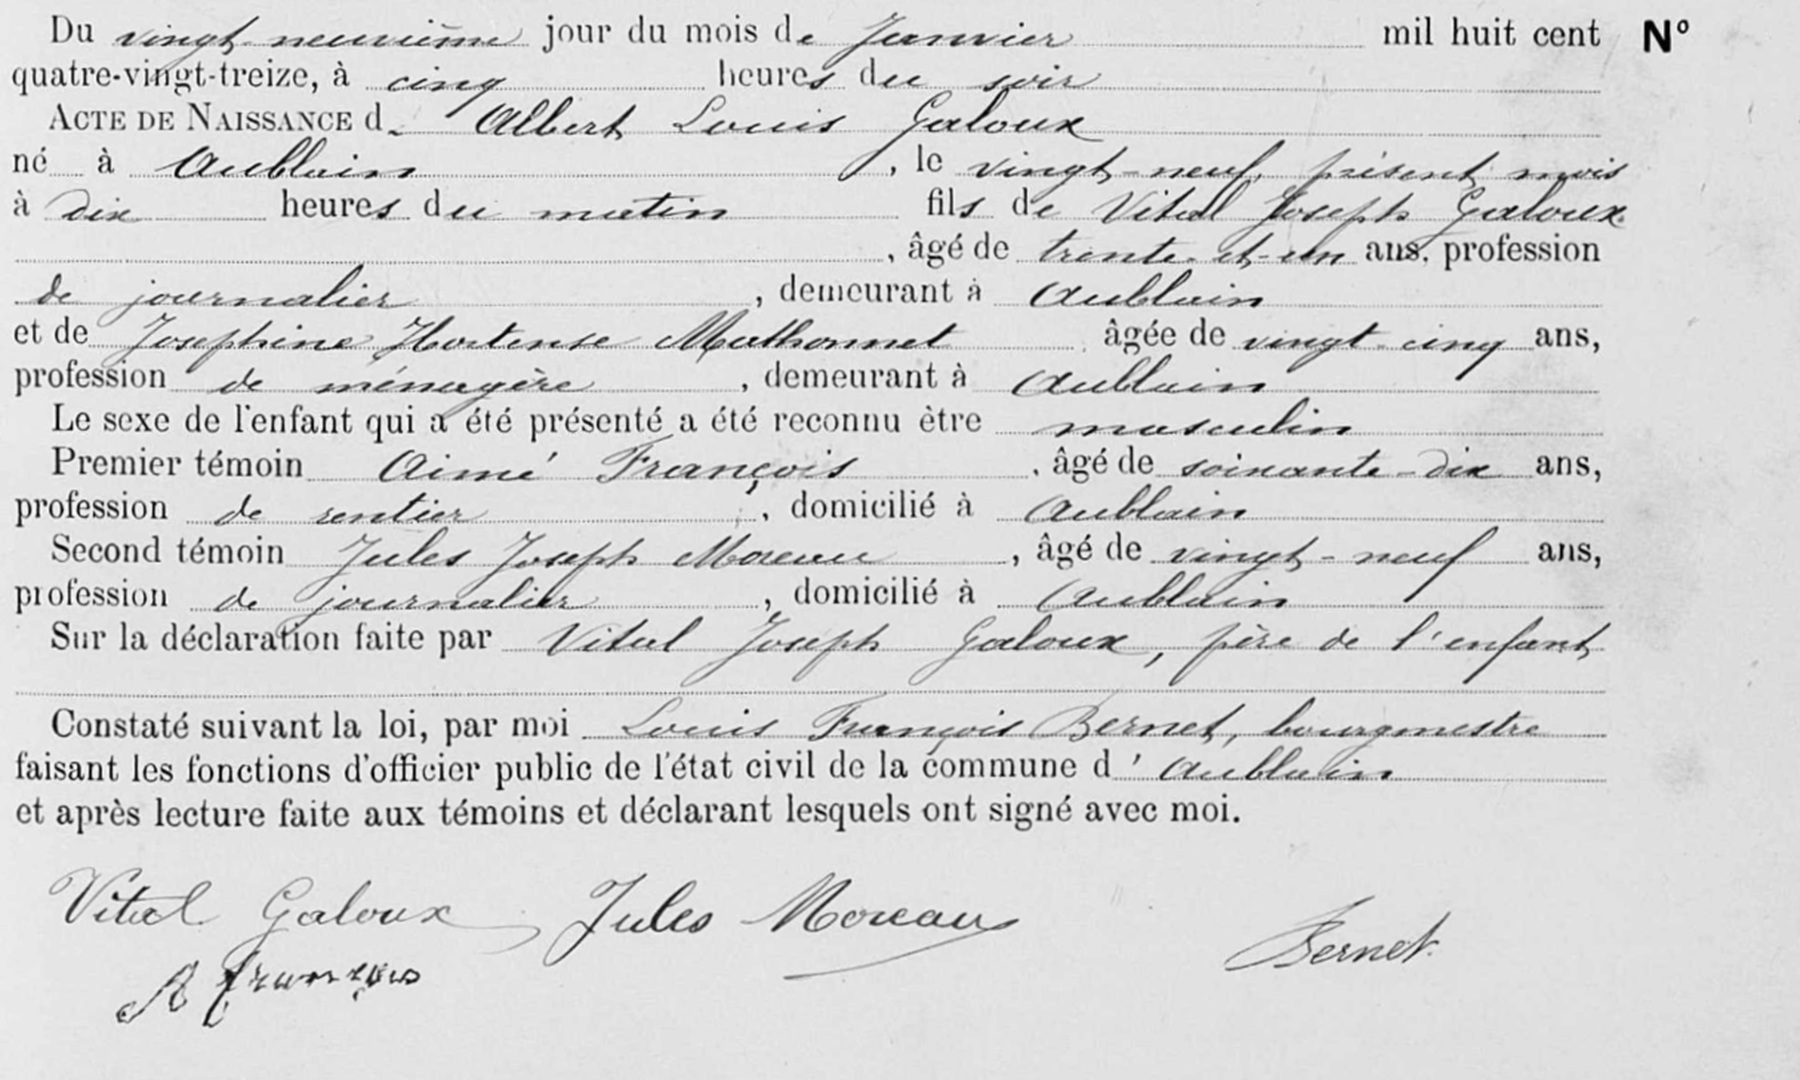 Du vingt-neuvième jour du mois de Janvier mil huit cent N°
quatre-vingt-treize, à cinq heures du soir
ACTE DE NAISSANCE d. Albert Louis Galoux
né à Aublain, le vingt-neuf, présent mois
à dix heures du matin fils de Vital Joseph Galoux
, âgé de trente-et-un ans, profession
de journalier, demeurant à Aublain
et de Josephine Hortense Mathonnet âgée de vingt-cinq ans,
profession de ménagère, demeurant à Aublain
Le sexe de l'enfant qui a été présenté a été reconnu être masculin
Premier témoin Aimé François, âgé de soixante-dix ans,
profession de rentier, domicilié à Aublain
Second témoin Jules Joseph Moreau, âgé de vingt-neuf ans,
profession de journalier, domicilié à Aublain
Sur la déclaration faite par Vital Joseph Galoux, père de l'enfant
Constaté suivant la loi, par moi Louis François Bernet, bourgmestre
faisant les fonctions d'officier public de l'état civil de la commune d'Aublain
et après lecture faite aux témoins et déclarant lesquels ont signé avec moi.
Vital Galoux Jules Moreau Bernet.
A françois